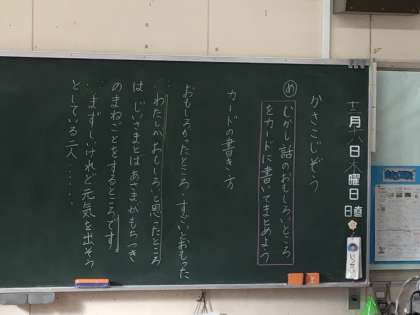 十二月 日木曜日
日直
かさこじぞう
め むかし話のおもしろいところ
をカードに書いてまとめよう
カードの書き方
おもしろかったところ、すごいとおもった
わたしがおもしろいと思ったところ
は、じいさまとばあさまがもちつき
のまねごとをするところです。
まずしいけれど元気を出そう
としている二人……